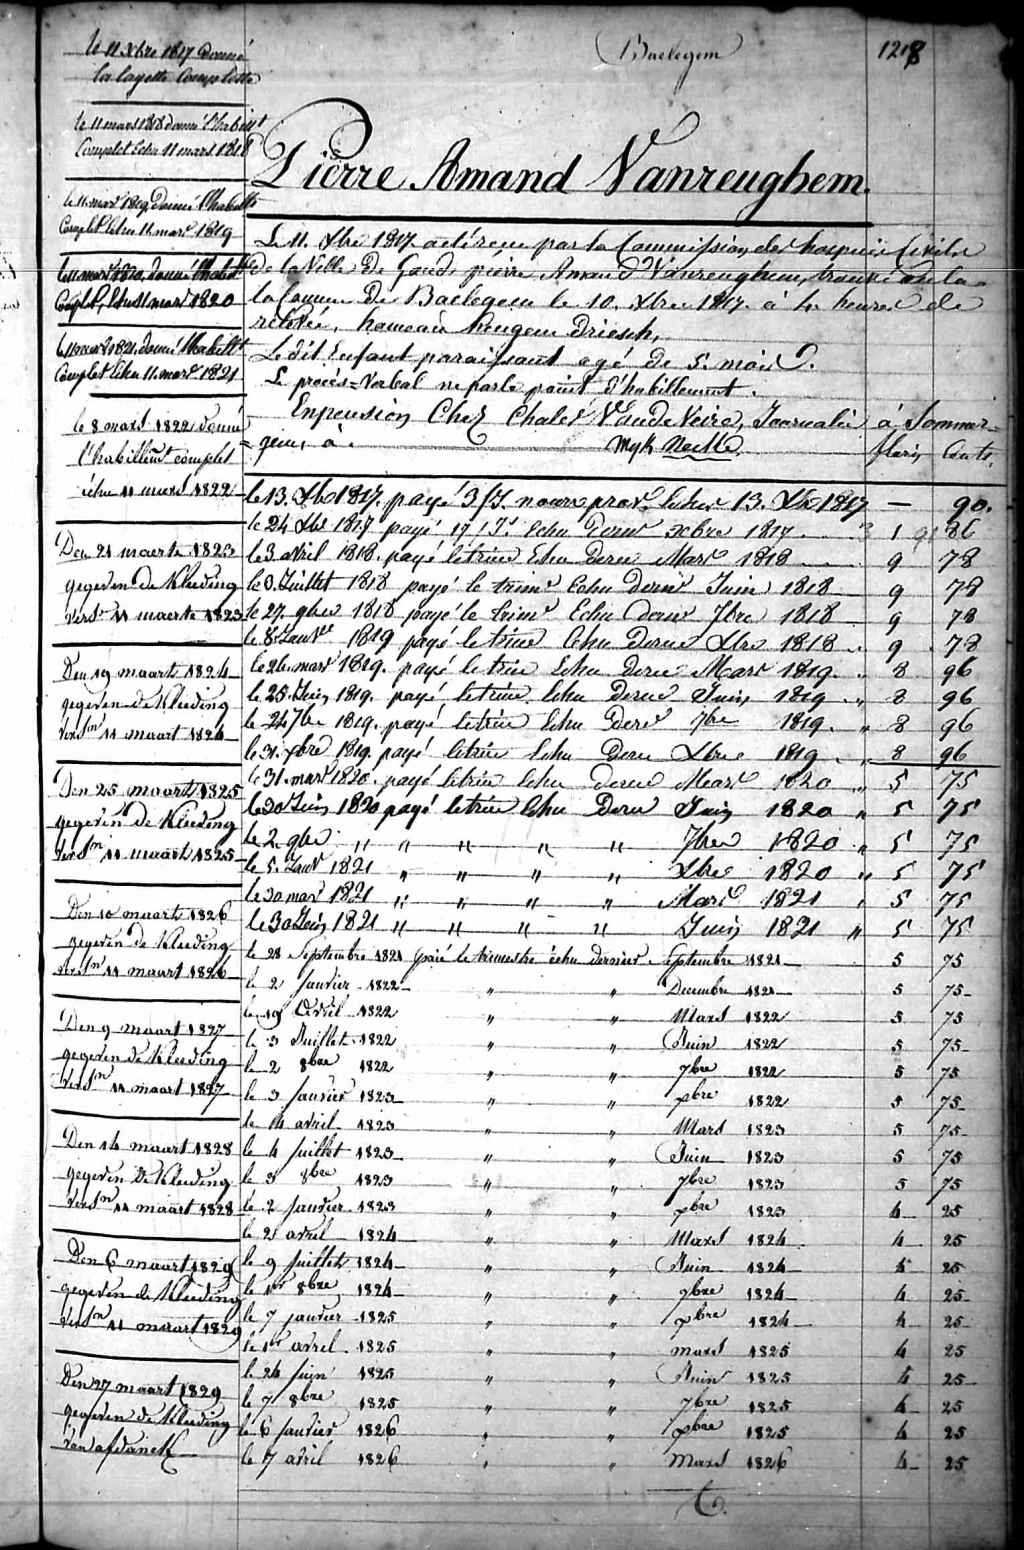 Baelegem
1218
Pierre Amand Vanreughem.
Le 11. Xbre 1817. a été reçu par la Commission des hospices Civils
de la Ville De Gand, pierre Amand Vanreughem, trouvé dans la
la Commune De Baelegem le 10. Xbre 1817. à 4 heures de
relevée, hameau heugem Driesch,
Le dit Enfant paraissant agé de 5. mois.
Le procès=Verbal ne parle point d'habillement.
Enpension Chez Charles Vande Veire, Journalier à Sommer=
=gem, à. Myk Neelle florins Cents.
le 13. Xbre 1817. payé 3 nourr prov. Echu 13. Xbre 1817 — 90.
le 24 Xbre 1817 payé 17 Js Echu Dernr xbre 1817 1 86
le 3 avril 1818. payé le trime Echu Derne Mars 1818 9 78
le 3. Juillet 1818 payé le trimr Echu Dernr Juin 1818 9 78
le 27. 9bre 1818 payé le trimr Echu dernr 7bre 1818 9 78
le 8. Janvr 1819 payé le trime Echu Derne Xbre 1818 9 78
le 26. mars 1819. payé le trim Echu Derne Mars 1819. 8 96
le 25. Juin 1819. payé le trim Echu Derne Juin 1819 „ 8 96
le 24 7bre 1819. payé le trim Echu Derne 7bre 1819. „ 8 96
le 31. xbre 1819. payé le trim Echu Derne Xbre 1819 „ 8 96
le 31. mars 1820. payé le trim Echu Derne Mars 1820 „ 5 75
le 30 Juin 1820 payé le trim Echu Derne Juin 1820 „ 5 75
le 2 9bre „ „ „ „ „ 7bre 1820 „ 5 75
le 5. Janvr 1821 „ „ „ „ Xbre 1820 „ 5 75
le 30 mars 1821 „ „ „ „ Mars 1821 „ 5 75
le 30 Juin 1821 „ „ „ „ Juin 1821 „ 5 75
le 28 Septembre 1821 paié le trimestre échu dernier Septembre 1821 5 75
le 2 Janvier 1822 „ „ Decembre 1821 5 75
le 19 Avril 1822 „ „ Mars 1822 5 75
le 3 Juillet 1822 „ „ Juin 1822 5 75
le 2 8bre 1822 „ „ 7bre 1822 5 75
le 3 Janvier 1823 „ „ xbre 1822 5 75
le 14 avril 1823 „ „ Mars 1823 5 75
le 4 Juillet 1823 „ „ Juin 1823 5 75
le 3 8bre 1823 „ „ 7bre 1823 5 75
le 2 Janvier 1823 „ „ xbre 1823 4 25
le 21 avril 1824 „ „ Mars 1824 4 25
le 9 Juillet 1824 „ „ Juin 1824 4 25
le 1er 8bre 1824 „ „ 7bre 1824 4 25
le 7 janvier 1825 „ „ xbre 1824 4 25
le 1er avril 1825 „ „ mars 1825 4 25
le 24 Juin 1825 „ „ Juin 1825 4 25
le 7 8bre 1825 „ „ 7bre 1825 4 25
le 6 Janvier 1826 „ „ xbre 1825 4 25
le 7 avril 1826 „ „ Mars 1826 4 25
le 11 Xbre 1817 Donné
la layette Complette
le 11 mars 1818 donné l'habillt
Complet Echu 11 mars 1818
le 11. mars 1819 Donné l'habillt
Complet Echu 11. mars 1819
le 11 mars 1820, donné l'habillt
Complet, Echu 11 mars 1820
le 11 mars 1821. donné l'habillt
Complet Echu 11. mars 1821
le 8 mars 1822 Donné
l'habillemt complet
échu 11 mars 1822
Den 21 maerte 1823
gegeven de Kleeding
Versn 11 maerte 1823
Den 19 maarts 1824
gegeven de Kleeding
Versn 11 maart 1824
Den 25 maarts 1825
gegeven de Kleeding
versn 11 maart 1825
Den 10 maarts 1826
gegeven de Kleeding
versn 11 maart 1826
Den 9 maart 1827
gegeven de Kleeding
versn 11 maart 1827
Den 14 maart 1828
gegeven De Kleeding
versn 11 maart 1828
Den 6 maart 1829
gegeven de Kleeding
versn 11 maart 1829
Den 27 maart 1829
gegeven de Kleeding
van afdanck